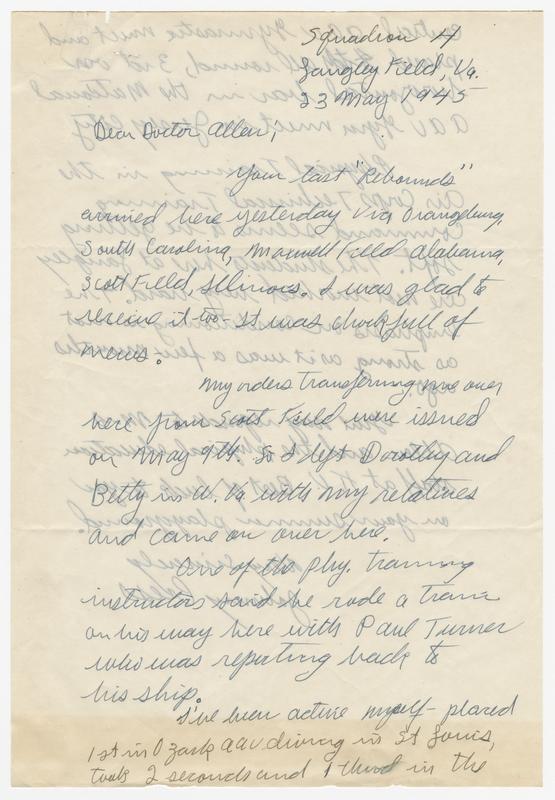 Squadron H
Langley Field, Va.
23 May 1945
Dear Doctor Allen,
Your last "Rebounds"
arrived here yesterday via Orangeburg,
South Carolina, Maxwell Field Alabama,
Scott Field, Illinois. I was glad to
receive it too - It was chockfull of
news.
My orders transfering me over
here from Scott Field were issued
on May 9th. So I left Dorothy and
Betty in W. Va with my relatives
and came on over here.
One of the phy. training
instructors said he rode a train
on his way here with Paul Turner
who was reporting back to
his ship.
I've been active myself - placed
1st in Ozark AAU diving in St Louis,
took 2 seconds and 1 third in the